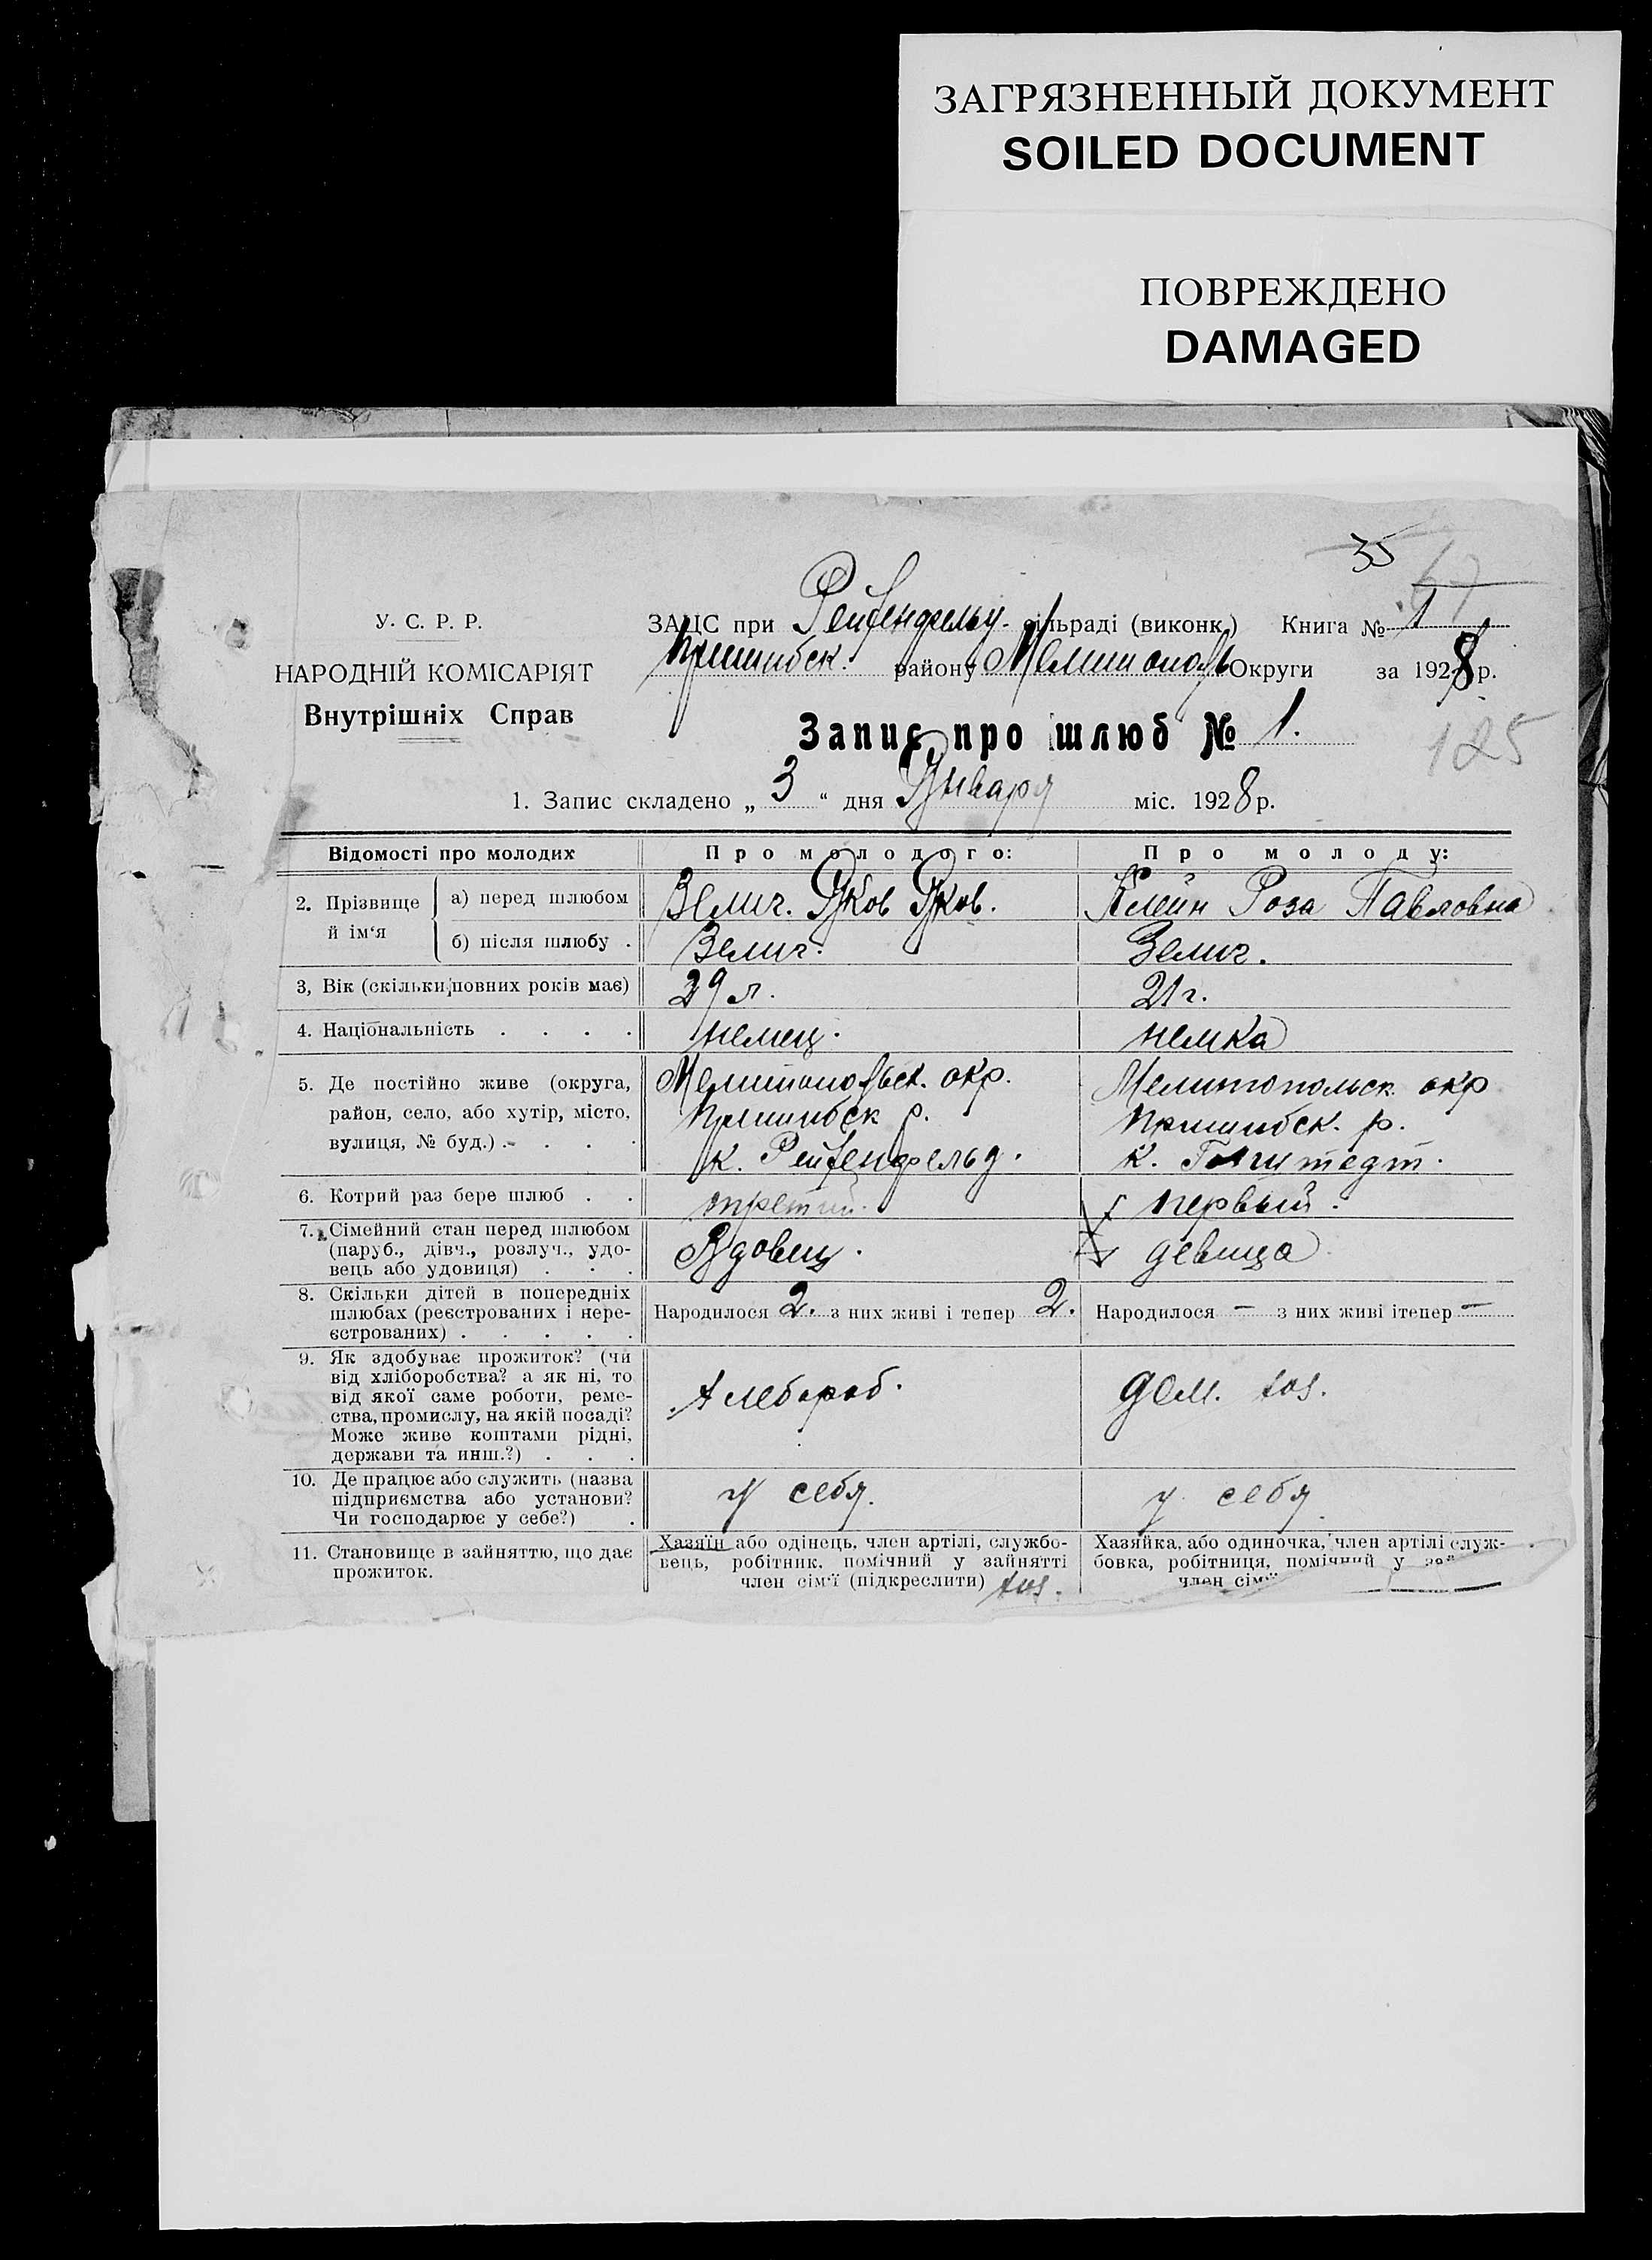 ЗАГРЯЗНЕННЫЙ ДОКУМЕНТ
SOILED DOCUMENT
ПОВРЕЖДЕНО
DAMAGED
35
67
У. С. Р. Р.
НАРОДНІЙ КОМІСАРІЯТ
Внутрішніх Справ
ЗАЦС при Рейхенфельд. сільраді (виконк.) Книга № 1
Пришибск. району Мелитопольс Округи за 1928 р.
Запис про шлюб № 1.
125
1. Запис складено „ 3 “ дня Января міс. 1928 р.
Відомості про молодих Про молодого: Про молоду:
2. Прізвище й ім‘я а) перед шлюбом Зелиг. Яков Яков. Клейн Роза Павловна
б) після шлюбу . Зелиг. Зелиг.
3, Вік (скільки повних років має) 29 л. 21 г.
4. Національність . . . . немец. немка
5. Де постійно живе (округа, Мелитопольск. окр. Мелитопольск. окр
район, село, або хутір, місто, Пришибск р. Пришибск. р.
вулиця, № буд.) . . . . к. Рейхенфельд. к.
6. Котрий раз бере шлюб . . третий. первый.
7. Сімейний стан перед шлюбом
(паруб., дівч., розлуч., удо-
вець або удовиця) . . . Вдовец. девица
8. Скільки дітей в попередніх
шлюбах (реєстрованих і нере-
єстрованих) . . . . . Народилося 2. з них живі і тепер 2. Народилося — з них живі і тепер —
9. Як здобуває прожиток? (чи
від хліборобства? а як ні, то
від якої саме роботи, реме-
ства, промислу, на якій посаді?
Може живе коштами рідні,
держави та инш.?) . . . Хлебороб. дом. хоз.
10. Де працює або служить (назва
підприємства або установи?
Чи господарює у себе?) . у себя. у себя.
11. Становище в зайняттю, що дає
прожиток.
Хазяїн або одінець, член артілі, службо-
вець, робітник, помічний у зайнятті
член сім‘ї (підкреслити) хоз.
Хазяйка, або одиночка, член артілі служ-
бовка, робітниця, помічний у
член